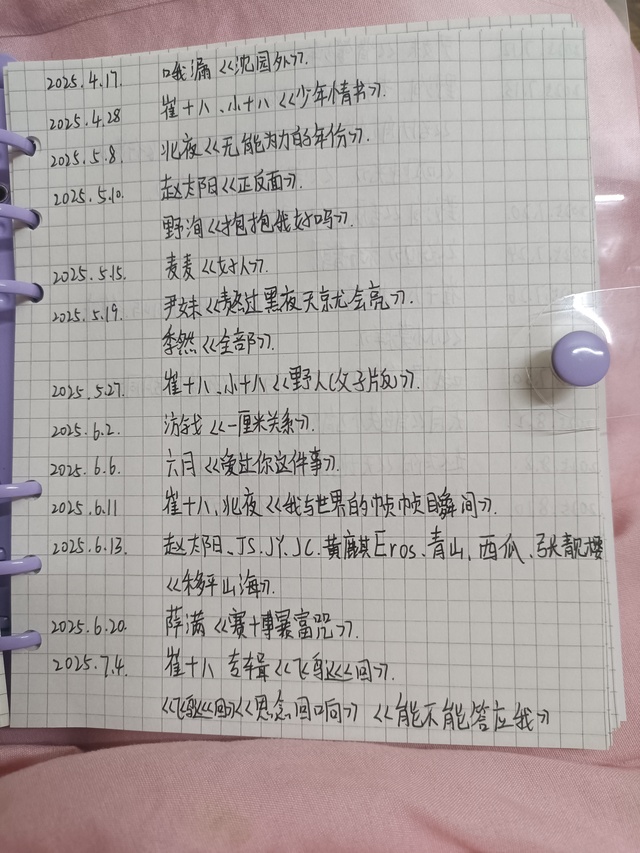 2025.4.17. 哦漏《沈园外》.
2025.4.28 崔十八、小十八《少年情书》.
2025.5.8. 北夜《无能为力的年份》.
2025.5.10. 赵太阳《正反面》.
野洵《抱抱我好吗》.
2025.5.15. 麦麦《好人》.
2025.5.19. 尹姝《熬过黑夜天就会亮》.
季然《全部》.
2025.5.27. 崔十八、小十八《野人(父子版)》.
2025.6.2. 《一厘米关系》.
2025.6.6. 六月《爱过你这件事》.
2025.6.11 崔十八、北夜《我与世界的帧帧瞬间》.
2025.6.13. 赵太阳、JS.JY.JC.黄麒Eros、青山、西瓜、张靓樱
《移平山海》.
2025.6.20. 薛满《赛博暴富咒》.
2025.7.4. 崔十八 专辑《飞驶<<回》.
《飞驶<<回》《思念回响》《能不能答应我》